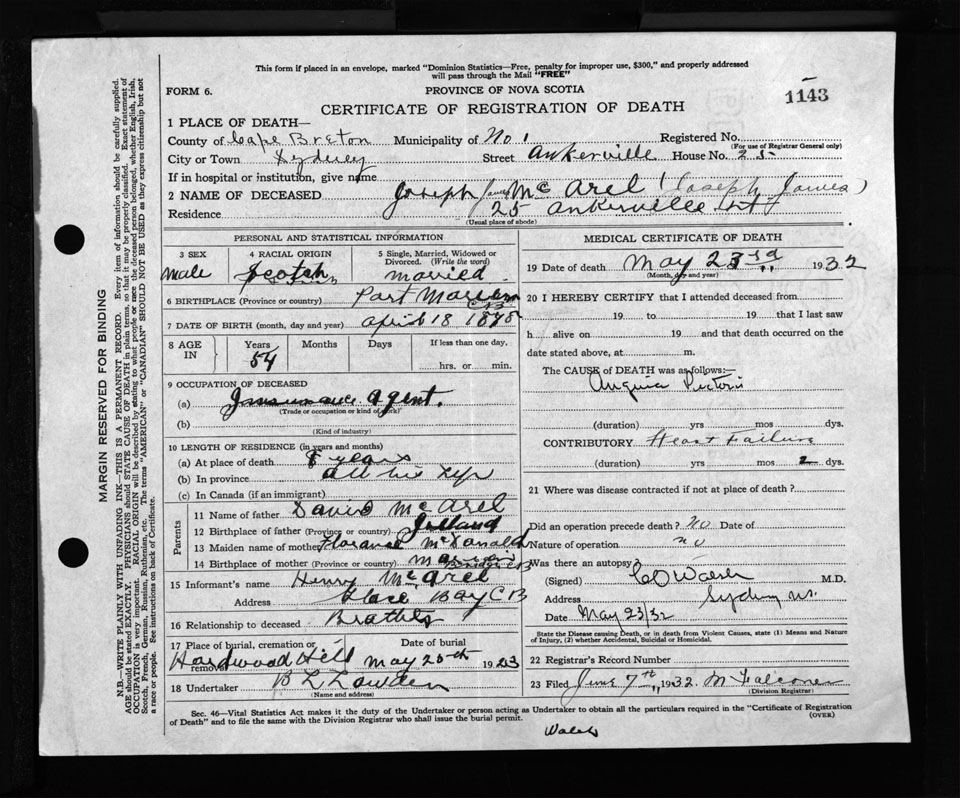 This form if placed in an envelope, marked "Dominion Statistics—Free, penalty for improper use, $300," and properly addressed
will pass through the Mail "FREE"
FORM 6.
PROVINCE OF NOVA SCOTIA
1143
CERTIFICATE OF REGISTRATION OF DEATH
1 PLACE OF DEATH—
County of Cape Breton Municipality of No 1 Registered No.
(For use of Registrar General only)
City or Town Sydney Street Ankerville House No. 25
If in hospital or institution, give name
2 NAME OF DECEASED Joseph James McArel (Joseph James)
Residence 25 Ankerville St
(Usual place of abode)
PERSONAL AND STATISTICAL INFORMATION
3 SEX
Male
4 RACIAL ORIGIN
Scotch
5 Single, Married, Widowed or
Divorced. (Write the word)
Married
6 BIRTHPLACE (Province or country) Port Morien
C B
7 DATE OF BIRTH (month, day and year) April 18 1878
8 AGE
IN
Years
54
Months
Days
If less than one day,
hrs. or min.
9 OCCUPATION OF DECEASED
(a) Insurance Agent.
(Trade or occupation or kind of work)
(b)
(Kind of industry)
10 LENGTH OF RESIDENCE (in years and months)
(a) At place of death 8 years
(b) In province all his life
(c) In Canada (if an immigrant)
Parents
11 Name of father David McArel
12 Birthplace of father (Province or country)
13 Maiden name of mother Florance McDonald
14 Birthplace of mother (Province or country) C B
15 Informant's name Henry McArel
Address Glace Bay C B
16 Relationship to deceased Brother
17 Place of burial, cremation or
removal Hardwood Hill
Date of burial
May 25th 1923
18 Undertaker B L Lowden
(Name and address)
MEDICAL CERTIFICATE OF DEATH
19 Date of death May 23rd 1932
(Month, day and year)
20 I HEREBY CERTIFY that I attended deceased from
19 to 19 that I last saw
h alive on 19 and that death occurred on
date stated above, at m.
The CAUSE of DEATH was as follows:—
Angina Pectoris
(duration) yrs mos dys.
CONTRIBUTORY Heart Failure
(duration) yrs mos 2 dys.
21 Where was disease contracted if not at place of death?
Did an operation precede death? No Date of
Nature of operation no
Was there an autopsy
(Signed) Walsh M.D.
Address Sydney NS.
Date May 23/32
State the Disease causing Death, or in death from Violent Causes, state (1) Means and Nature
of Injury, (2) whether Accidental, Suicidal or Homicidal.
22 Registrar's Record Number
23 Filed June 7th, 1932. M Falconer
(Division Registrar)
Sec. 46—Vital Statistics Act makes it the duty of the Undertaker or person acting as Undertaker to obtain all the particulars required in the "Certificate of Registration
of Death" and to file the same with the Division Registrar who shall issue the burial permit.
(OVER)
Walsh
MARGIN RESERVED FOR BINDING
N.B.—WRITE PLAINLY WITH UNFADING INK—THIS IS A PERMANENT RECORD. Every item of information should be carefully supplied.
AGE should be stated EXACTLY. PHYSICIANS should STATE CAUSE OF DEATH in plain terms, so that it may be properly classified. Exact statement of
OCCUPATION is very important. RACIAL ORIGIN will be described by stating to what people or race the deceased person belonged, whether English, Irish,
Scotch, French, German, Russian, Ruthenian, etc. The terms "AMERICAN" or "CANADIAN" SHOULD NOT BE USED as they express citizenship but not
a race or people. See instructions on back of Certificate.